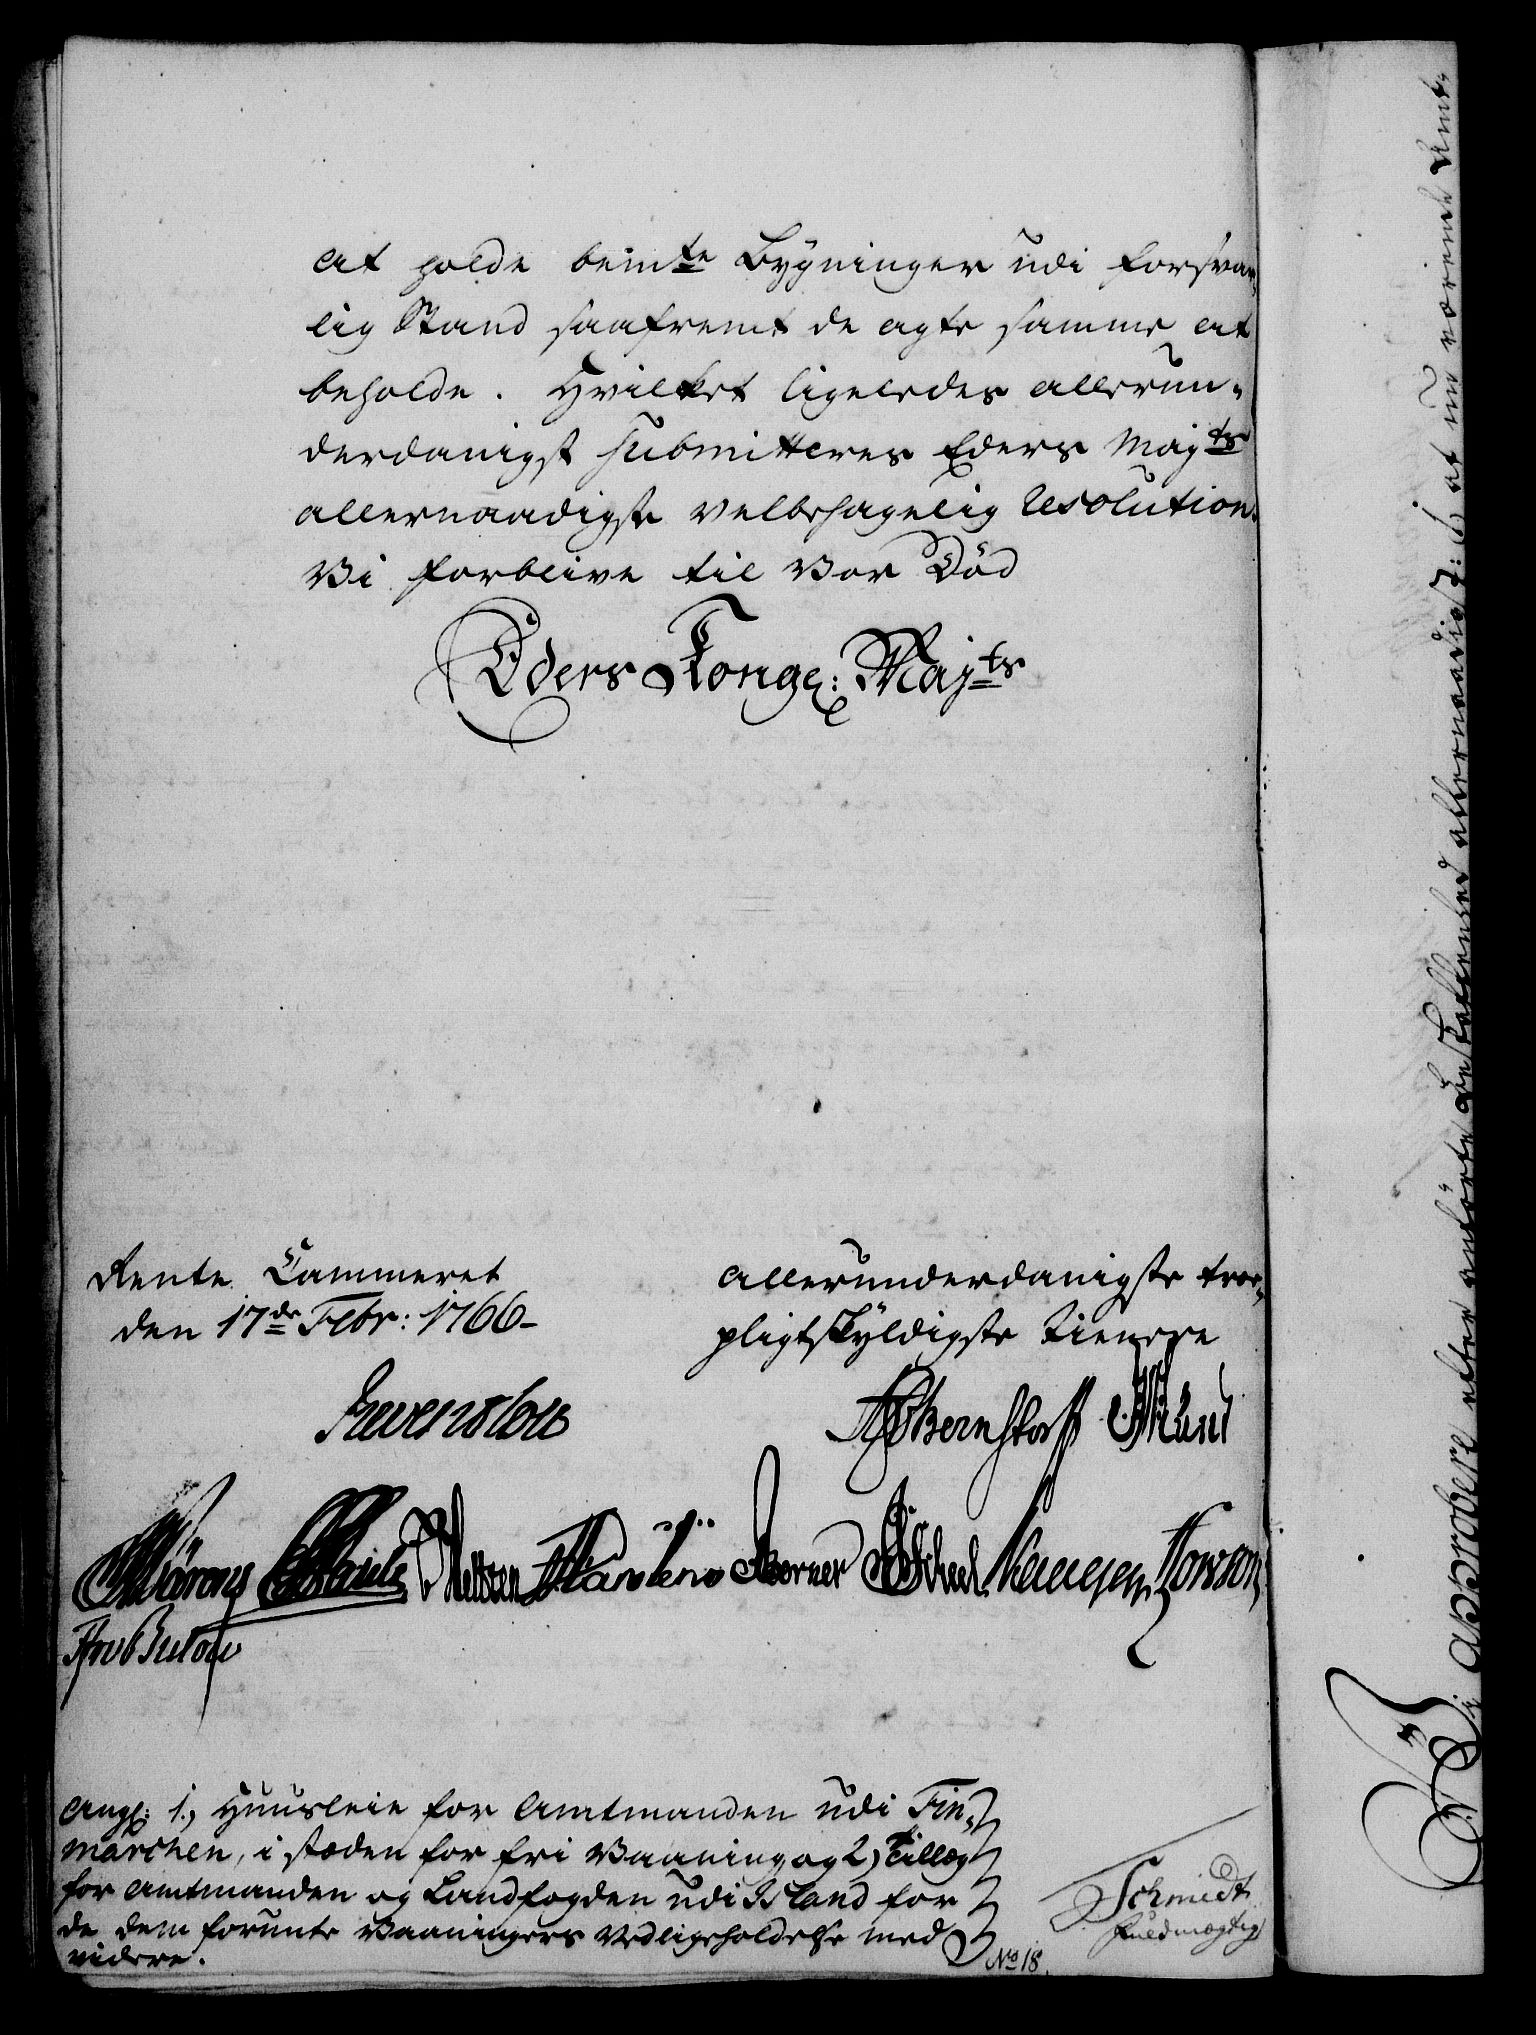 at holde bemte Bygninger udi forsvar-
lig Stand saafremt de agte samme at
beholde. Hvilket ligeledes allerun-
derdanigst submitteres Eders Majts
allernaadigste velbehagelig Resolution.
Vi forblive til Vor Död
Eders Kongel: Majts
Rente Cammeret
den 17de Febr: 1766-
allerunderdanigste troe-
pligtskyldigste tienere
Reventlou
Bernstorff
Körner
Bulow
angl: 1, Huusleie for Amtmanden udi Fin-
marchen, i stæden for fri Vaaning og 2) Tillæg
for Amtmanden og Landfogden udi Island for
de dem forunte Vaaningers Vedligeholdelse med
videre.
Schmidt
Fuldmægtig
No 18.
Vi approbere efter anförte Beskaffenhed allernaadigst: 1) at nu værende Amt-